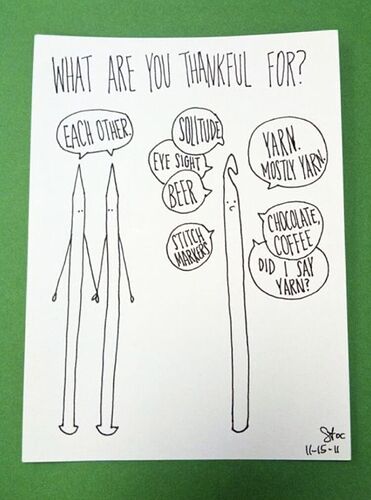 WHAT ARE YOU THANKFUL FOR?
EACH OTHER.
SOLITUDE
EYE SIGHT
BEER
STITCH
MARKERS
YARN.
MOSTLY YARN.
CHOCOLATE,
COFFEE
DID I SAY
YARN?
11-15-11